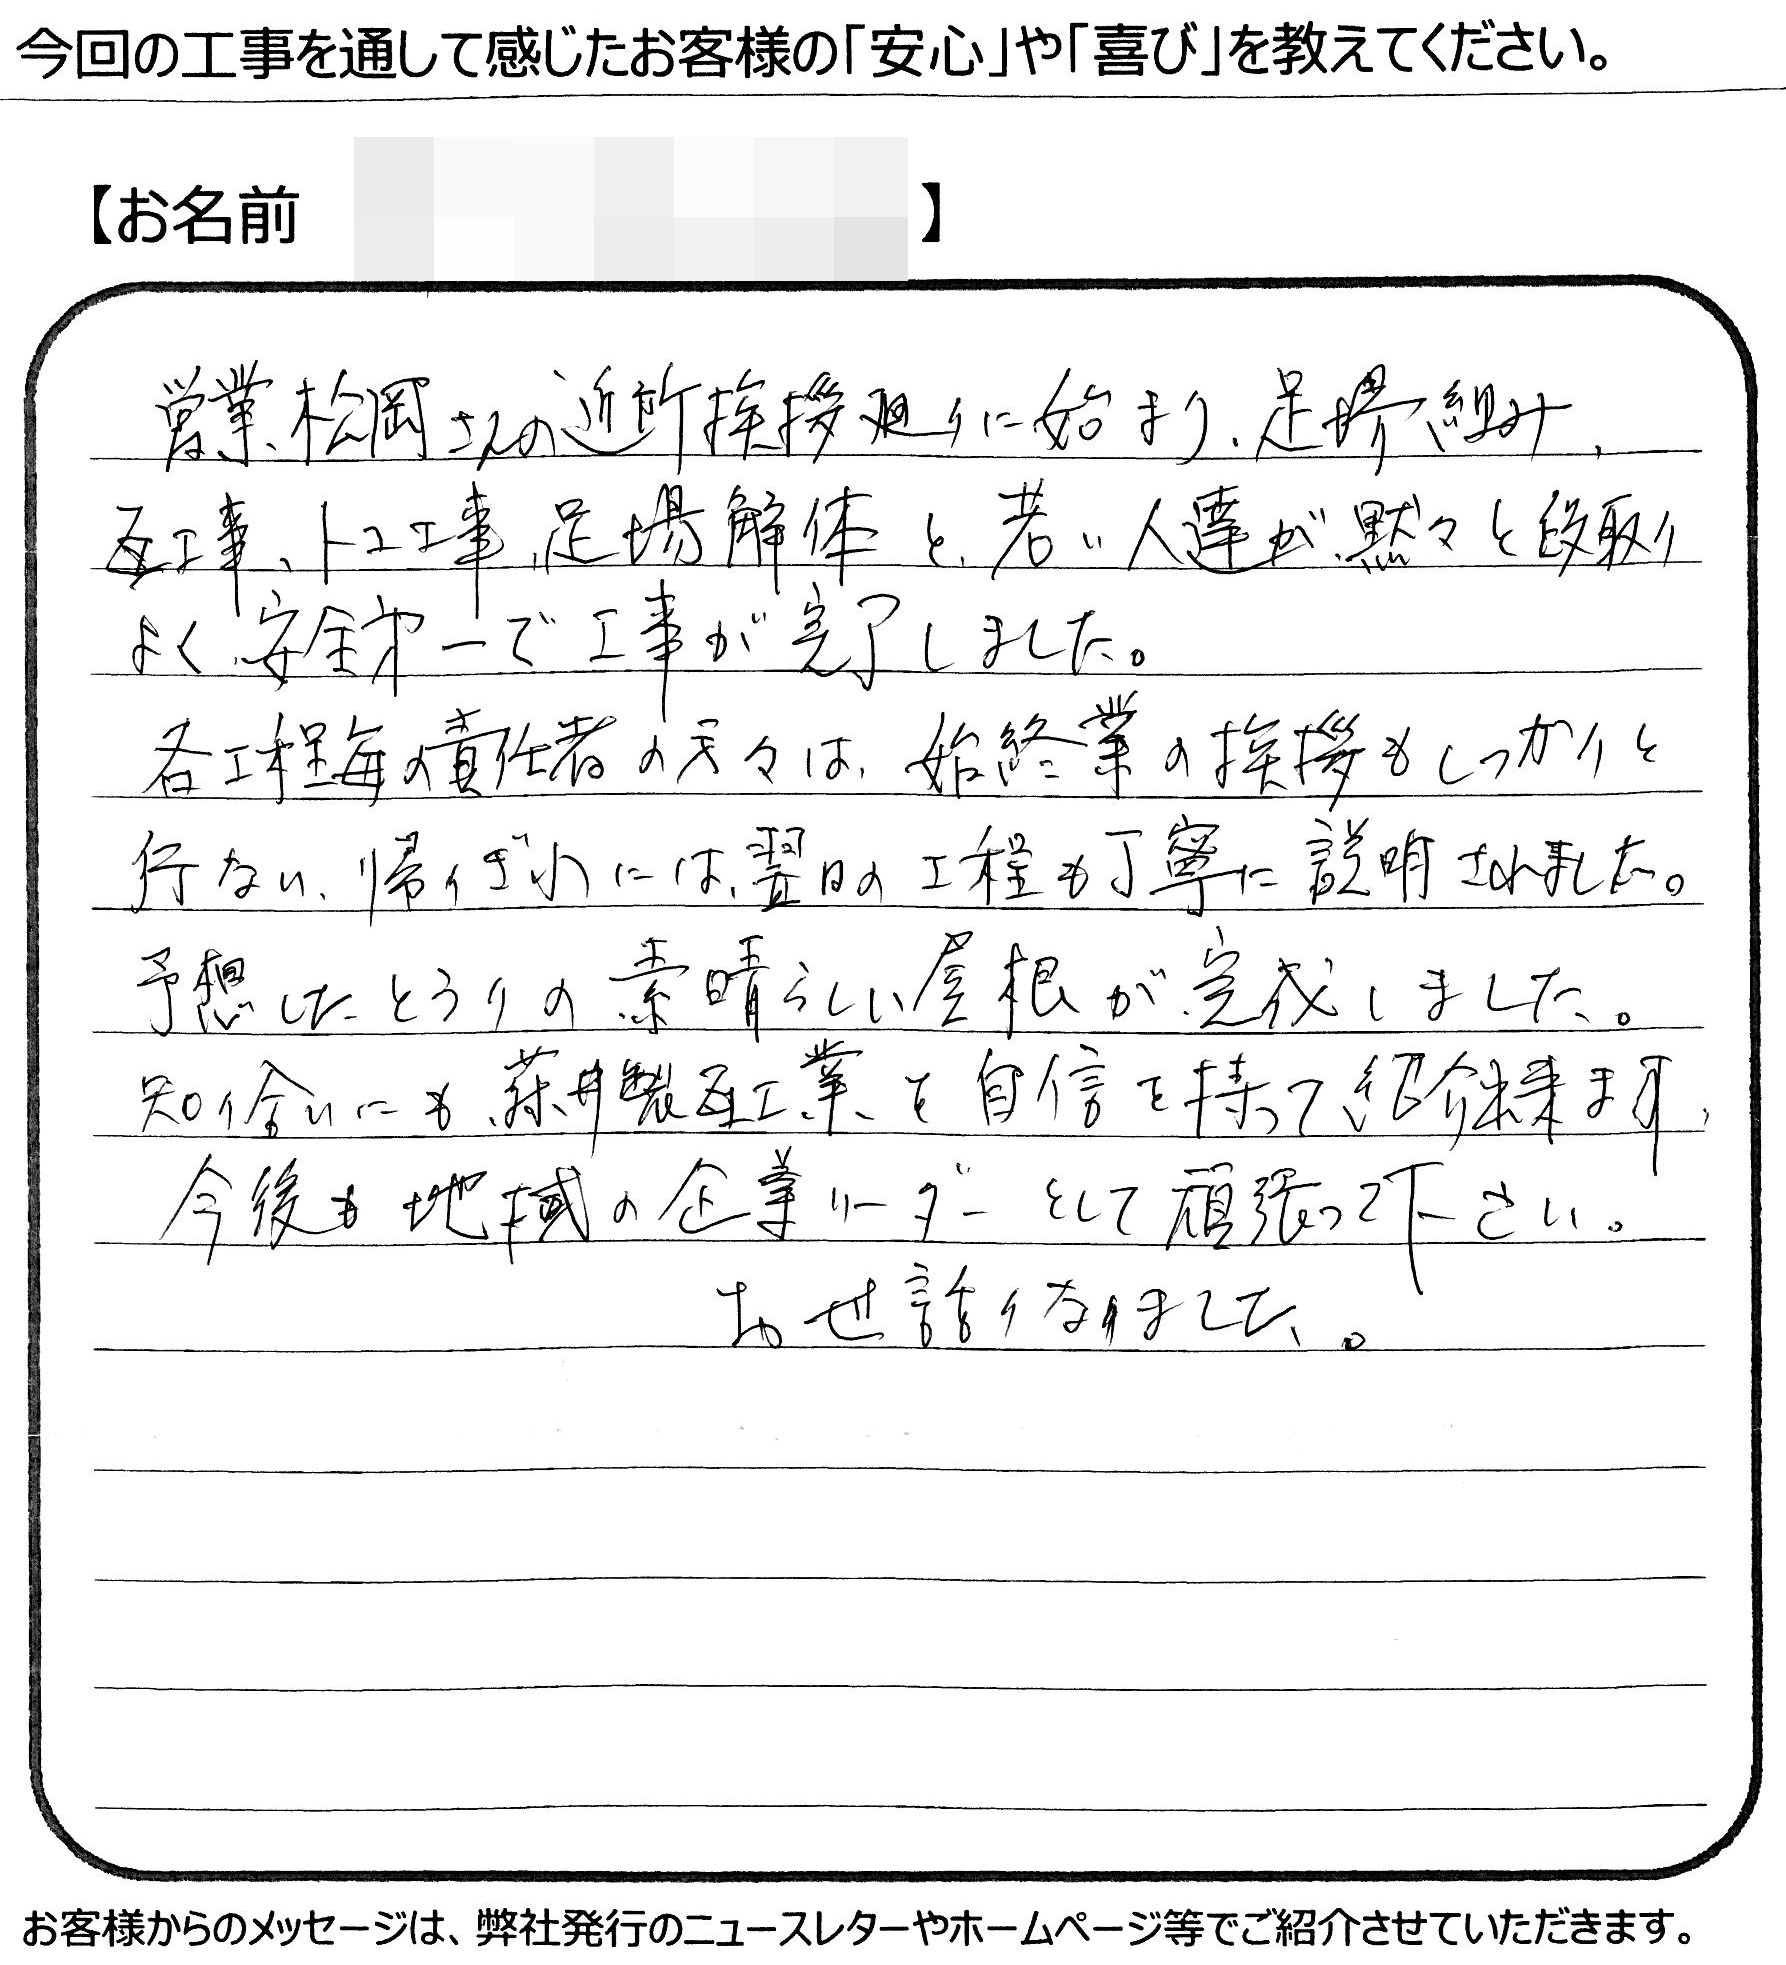 今回の工事を通して感じたお客様の「安心」や「喜び」を教えてください。
【お名前 】
営業、松岡さんの近所挨拶廻りに始まり、足場組み、
瓦工事、トユ工事、足場解体と、若い人達が黙々と段取り
よく、安全第一で工事が完了しました。
各工程毎の責任者の方々は、始終業の挨拶もしっかりと
行ない、帰りぎわには、翌日の工程も丁寧に説明されました。
予想したとうりの素晴らしい屋根が完成しました。
知り合いにも、藤井製瓦工業を自信を持って紹介出来ます、
今後も地域の企業リーダーとして頑張って下さい。
お世話になりました。
お客様からのメッセージは、弊社発行のニュースレターやホームページ等でご紹介させていただきます。